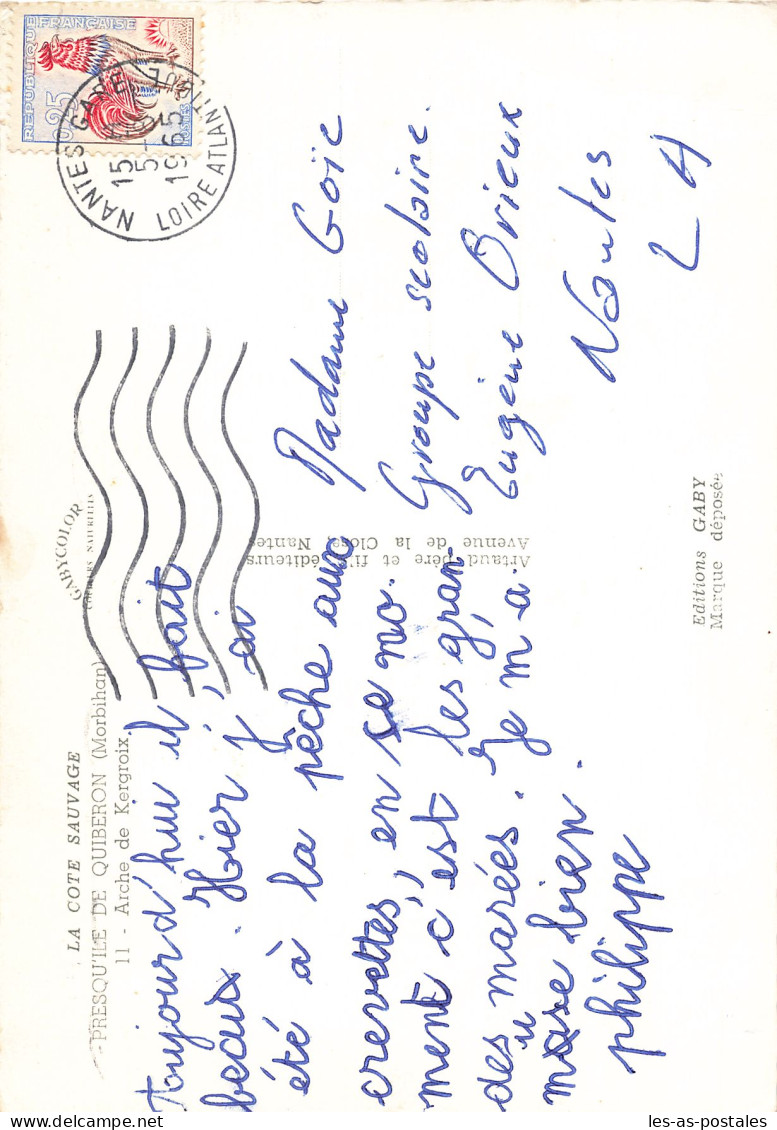 LA COTE SAUVAGE
PRESQU'ILE DE QUIBERON (Morbihan)
11 - Arche de Kergroix
GABYCOLOR
COULEURS NATURELLES
REPUBLIQUE FRANÇAISE
0,25
POSTES
NANTES GARE
15
5-
1965
LOIRE ATLANTIQUE
Toujourd'hui il fait
beaux. Hier j'ai
été à la pêche aux
crevettes, en se no
ment c'est les gran
des marées. Je m a
muse bien.
philippe
Madame Goïc
Groupe scolaire.
Eugène Brieux
Nantes
L A
Artaud père et fils, éditeurs
Avenue de la Close, Nantes
Editions GABY
Marque déposée
les-as-postales